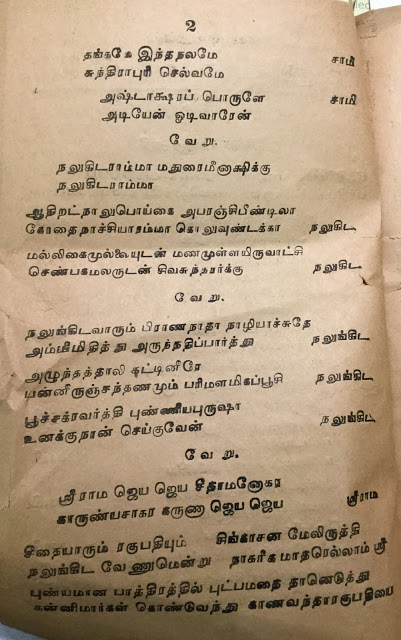 2
தங்கமே இந்தநலமே சாமி
சுந்திராபுரி செல்வமே
அஷ்டாக்ஷரப் பொருளே சாமி
அடியேன் ஓடிவாரேன்
வேறு.
நலுகிடராம்மா மதுரைமீனாக்ஷிக்கு
நலுகிடராம்மா
ஆதிறட்நாலுபொய்கை அபரஞ்சிபீண்டிலா
கோதைநாச்சியாரம்மா கொலுவுண்டக்கா நலுகிட
மல்லிகைமுல்லையுடன் மணமுள்ளயிருவாட்சி
செண்பகமலருடன் சிவசுந்தரர்க்கு நலுகிட
வேறு.
நலுங்கிடவாரும் பிராணநாதா நாழியாச்சுதே
அம்மீமிதித்து அருந்ததிப்பார்த்து நலுங்கிட
அழுந்தத்தாலி கட்டினீரே
பன்னீருஞ்சந்தணமும் பரிமளமிகப்பூசி நலுங்கிட
பூச்சக்ரவர்த்தி புண்ணியபுருஷா
உனக்குநான் செய்குவேன் நலுங்கிட
வேறு.
ஸ்ரீராம ஜெய ஜெய சீதாமனோகர
காருண்யசாகர கருணா ஜெய ஜெய ஸ்ரீராம
சீதையாரும் ரகுபதியும் சிங்காசன மேலிருத்தி
நலுங்கிட வேணுமென்று நாகரிக மாதரெல்லாம் ஸ்ரீ
புண்யமான பாத்திரத்தில் புட்பமதை தானெடுத்து
கன்னிமார்கள் கொண்டுவந்து காணவந்தாரகுபதியை